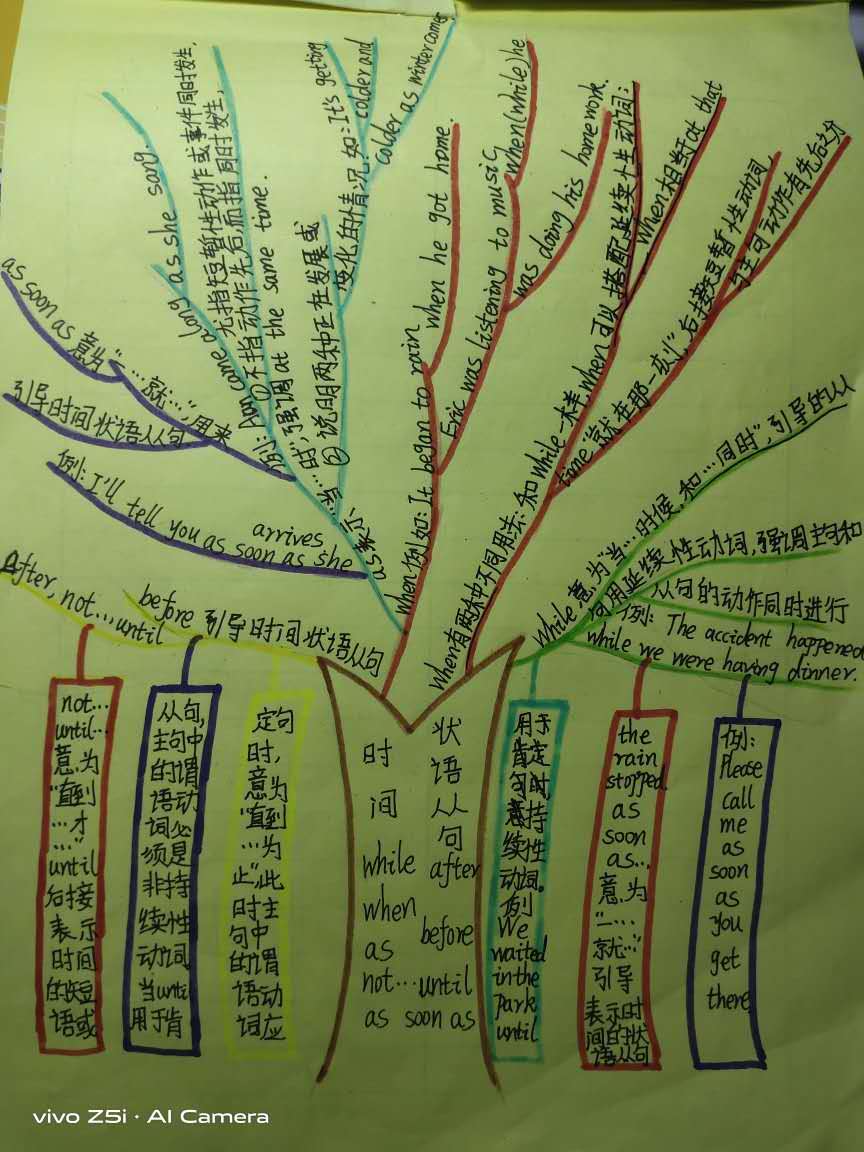 as soon as 意为"…就…",用来
引导时间状语从句
例: I'll tell you as soon as she
arrives
as表示
"当…时",强调 at the same time.
①不指动作先后而指同时发生,
尤指短暂性动作或事件同时发生,
例: Ann came along as she sang.
②说明两种正在发展或
变化的情况.如: It's getting
colder and
colder as winter comes
when 例如: It began to rain
when he got home.
Eric was listening to music
when(while) he
was doing his homework.
when有两种不同用法: 和while一样when可以搭配延续性动词;
when相当于at that
time"就在那一刻",后接短暂性动词
与主句动作有先后之分
while 意为"当…时候,和…同时",引导的从
句用延续性动词,强调主句和
从句的动作同时进行
例: The accident happened
while we were having dinner.
After, not…until
before 引导时间状语从句
not…
until…
意为
"直到
…才
…"
until
后接
表示
时间
的短
语或
从句,
主句中
的谓
语动
词必
须是
非持
续性
动词
当until
用于肯
定句
时,
意为
"直到
…为
止"此
时主
句中
的谓
语动
词应
时间
状语从句
while after
when
as before
not…until
as soon as
用于
肯定
句时,
意持
续性
动词。
例
We
waited
in the
park
until
the
rain
stopped.
as
soon
as…
意为
"一…
就…"
引导
表示时
间的状
语从句
例:
Please
call
me
as
soon
as
you
get
there
vivo Z5i · AI Camera